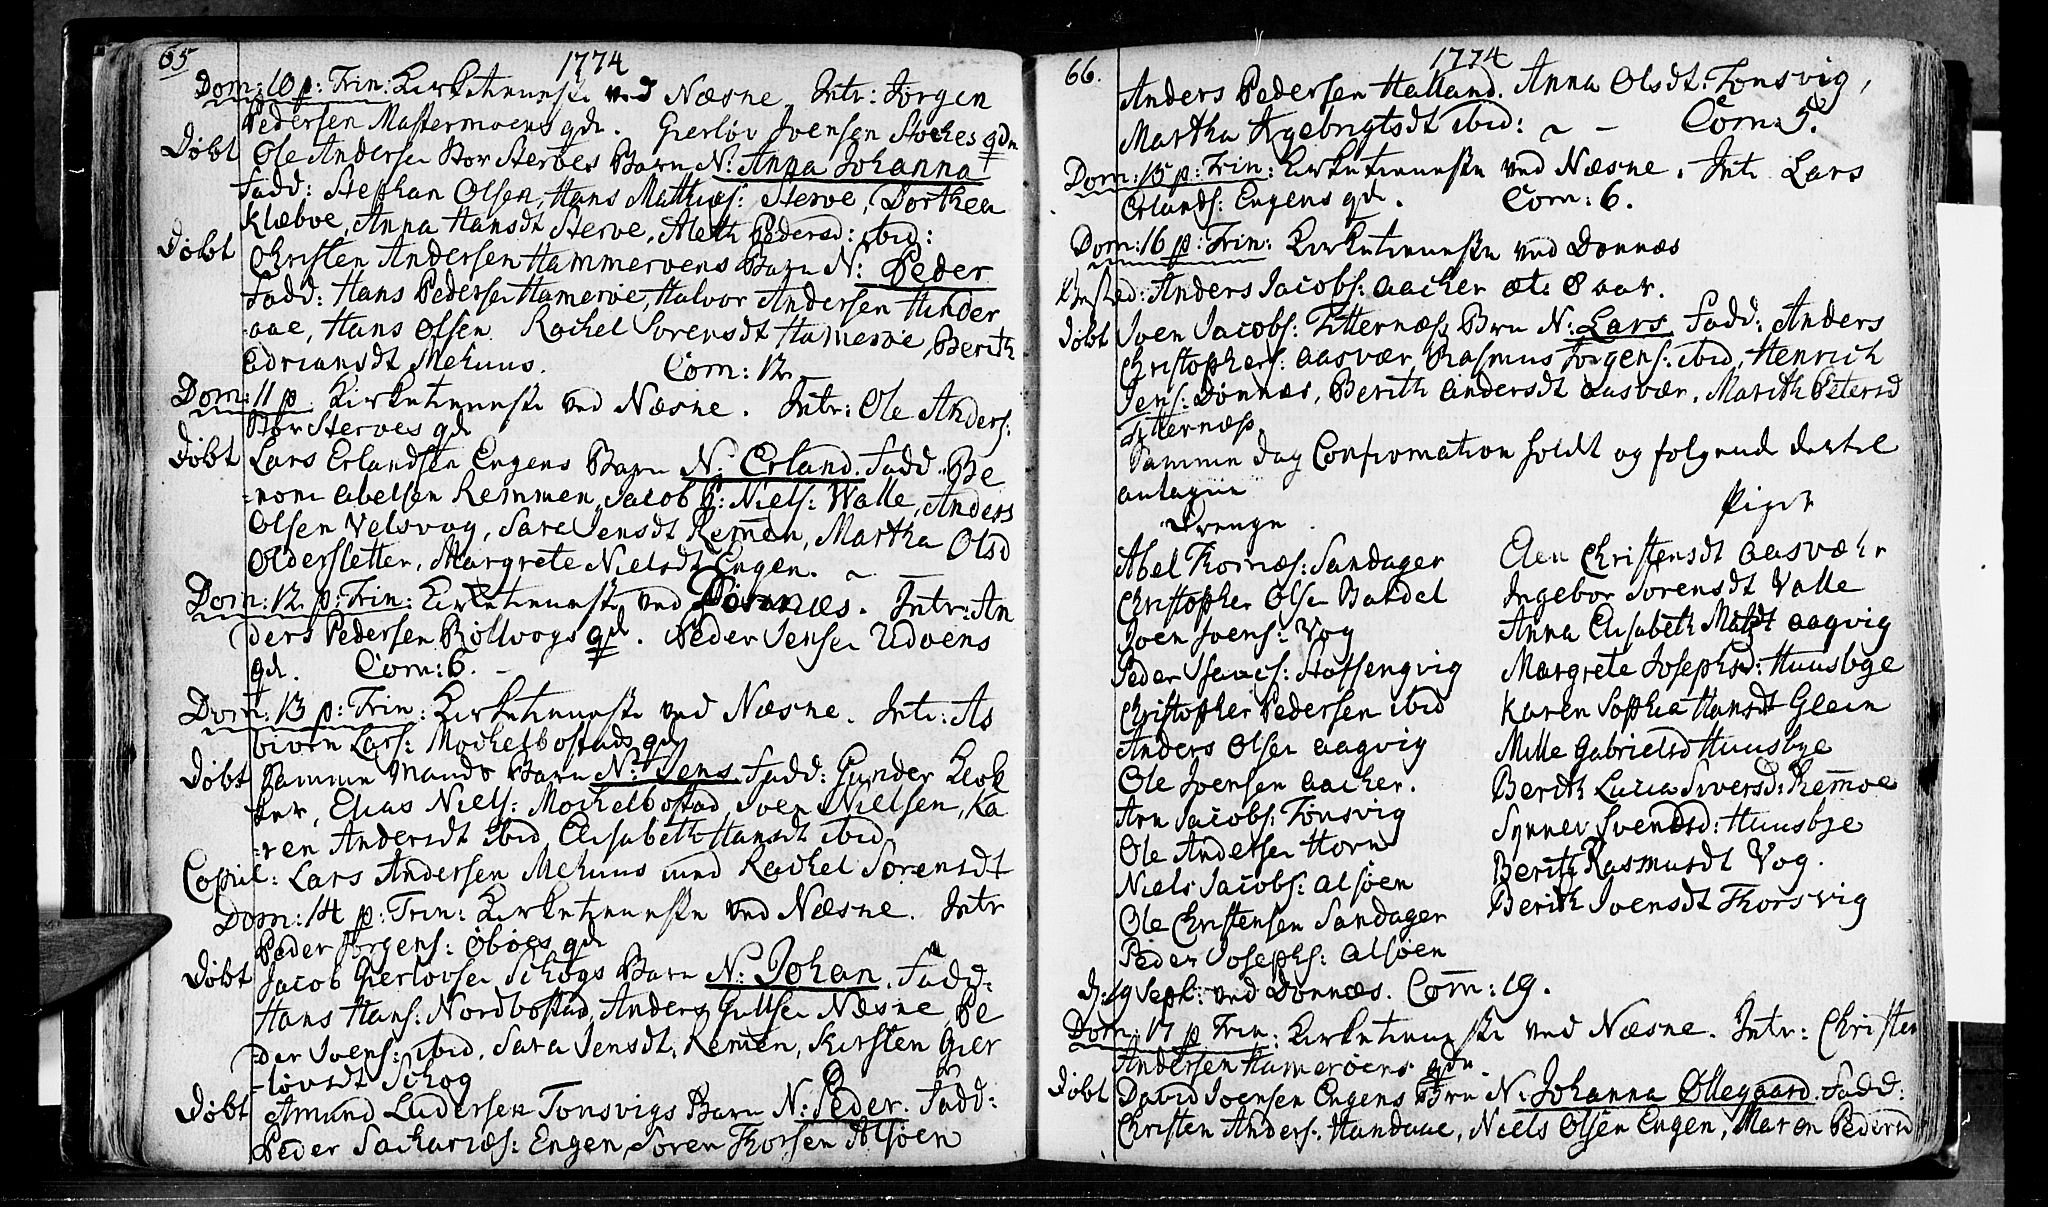 65
1774
Dom: 10 p: Trin: Kirketienniste ved Næsne. Intr: Jørgen
Pedersen Mastermoens qdr. Gierløv Joensen Stockes qdr
Døbt Ole Andersen Stor Sterves Barn N: Anna Johanna
Fadd: Stephan Olsen, Hans Mathiæs: Sterve, Dorthea
Klæboe, Anna Hansdt Sterve, Aleth Pedersd: ibid:
Døbt Christen Andersen Hammeroens Barn N: Peder
Fadd: Hans Pedersen Hameroe, Halvor Andersen Hinder
aae, Hans Olsen Rachel Sorensdt Hameroe, Berith
Edriansdt Mehuus. Com: 12.
Dom: 11 p. Kirketienniste ved Næsne. Intr: Ole Anders:
Stor Sterves qdr
Døbt Lars Erlandsen Engens Barn N: Erland. Fadd: Be
-noni Abelsen Remmen, Jacob P: Niels: Walle, Anders
Olsen Velsvog, Sara Jensdt Remen, Martha Olsd
Oldersletter, Margrete Nielsdt Engen.
Dom: 12. p: Trin: Kirketienniste ved Dönnæs. Intr: An
ders Pedersen Bollvogs qdr. Peder Jensen Udoens
qdr. Com: 6.
Dom: 13 p: Trin: Kirketienniste ved Næsne. Intr: As
biörn Lars: Mochelbostads qdr
Døbt Samme Mands Barn N: Jens. Fadd: Gunder Klok
ker, Elias Niels: Mochelbostad, Joen Nielsen, Ka
-ren Andersdt ibid, Elisabeth Hansdt ibid
Copul: Lars Andersen Mehuus med Rachel Sorensdt
Dom: 14 p: Trin: Kirketienniste ved Næsne. Intr
Peder Jörgens: Öböes qdr
Døbt Jacob Gierlovsen Schogs Barn N: Johan. Fadd:
Hans Hans: Nordbostad, Anders Gullsen Næsne, Pe
-der Joens: ibid, Sara Jensdt, Remen, Kirsten Gier
-løvsdt Schog
Døbt Amund Ludersen Tonsvigs Barn N: Peder. Fadd:
Peder Sachariæs: Engen, Soren Thorsen Alsøen
66.
1774
Anders Pedersen Halland. Anna Olsdt: Tonsvig,
Martha Ingebrigtsdt ibid: Com: 5.
Dom: 15 p: Trin: Kirketienniste ved Næsne. Intr Lars
Erlands: Engens qdr. Com: 6.
Dom: 16 p: Trin: Kirketienniste ved Donnæs
Anders Jacobs: Aacher æt. 8 aar.
Døbt Joen Jacobs: Titternæss Brn N: Lars. Fadd: Anders
Christophers: Aasvær Rasmus Jørgens: ibid, Henrich
Jens: Dønnæs, Berith Andersdt Aasvær, Marith Petersd
Titternæss
Samme Dag Confirmation holdt og følgende dertil
antagne
Drenge
Abel Thomæs: Sandager
Christopher Olsen Bandel
Joen Joens: Vog
Peder Isaacs: Staffengvig
Christopher Pedersen ibid
Anders Olsen Aagvig
Ole Joensen Aacher.
Arn Jacobs: Tønsvig
Ole Andersen Horn
Niels Jacobs: Alsøen
Ole Christensen Sandager
Peder Josephs: Alsøen
Piger
Elen Christensdt Aasvær
Ingebor Sorensdt Valle
Anna Elisabeth Matsdt Aagvig
Margrete Josephsd: Huusbye
Karen Sophia Hansdt Glein
Mille Gabrielsd Huusbye
Berith Lucia Siversd: Remoe
Synnev Svendsd: Huusbye
Berith Rasmusdt Vog.
Berith Joensdt Thorsvig
D: 19 Sept: ved Dønnæs. Com: 19.
Dom: 17 p Trin: Kirketienniste ved Næsne. Intr: Christen
Andersen Hameröens qdr.
Døbt David Joensen Engens Brn N: Johanna Øllegaard. Fadd:
Christen Anders: Handaae, Niels Olsen Engen, Maren Pedersd